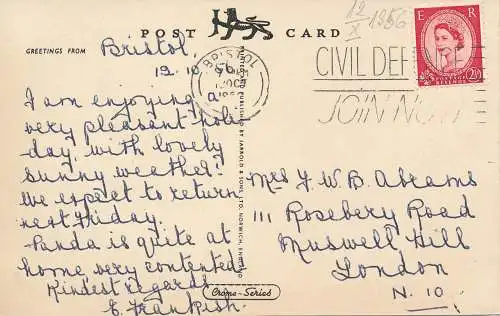 POST CARD
12
X 1956
GREETINGS FROM
Bristol.
12.10.56.
I am enjoying a
very pleasant holi-
day, with lovely
sunny weather!
We expect to return
next Friday.
Panda is quite at
home, very contented
Kindest regards
E. Frankish.
BRISTOL
OC
CIVIL DEFENCE
JOIN NOW
E R
POSTAGE REVENUE
2½D
PRINTED & PUBLISHED BY JARROLD & SONS LTD. NORWICH, ENGLAND
Crome-Series
Mrs J. W. B. Abrams
111 Rosebery Road
Muswell Hill
London
N. 10